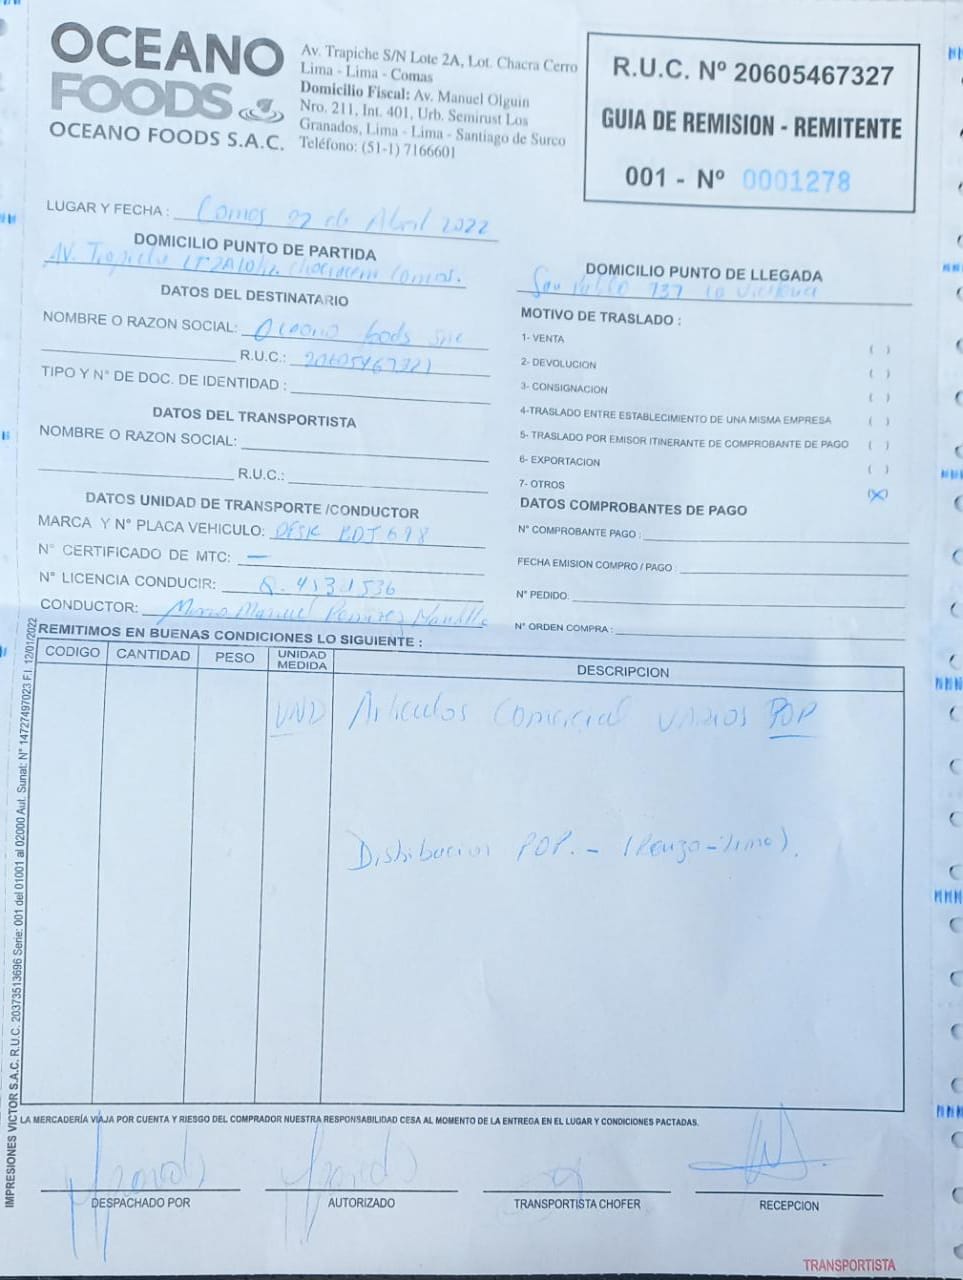 OCEANO
FOODS
OCEANO FOODS S.A.C.
Av. Trapiche S/N Lote 2A, Lot. Chacra Cerro
Lima - Lima - Comas
Domicilio Fiscal: Av. Manuel Olguin
Nro. 211, Int. 401, Urb. Semirust Los
Granados, Lima - Lima - Santiago de Surco
Teléfono: (51-1) 7166601
R.U.C. Nº 20605467327
GUIA DE REMISION - REMITENTE
001 - Nº 0001278
LUGAR Y FECHA : Comas 02 de Abril 2022
DOMICILIO PUNTO DE PARTIDA
AV. Trapiche Comas.
DOMICILIO PUNTO DE LLEGADA
San Pablo 737 La Victoria
DATOS DEL DESTINATARIO
NOMBRE O RAZON SOCIAL: Oceano foods sac
R.U.C.: 20605467327
TIPO Y N° DE DOC. DE IDENTIDAD :
DATOS DEL TRANSPORTISTA
NOMBRE O RAZON SOCIAL:
R.U.C.:
DATOS UNIDAD DE TRANSPORTE /CONDUCTOR
MARCA Y N° PLACA VEHICULO: DFSK BDJ 698
N° CERTIFICADO DE MTC: —
N° LICENCIA CONDUCIR: Q. 41311536
CONDUCTOR: Manuel Ramirez
MOTIVO DE TRASLADO :
1- VENTA ( )
2- DEVOLUCION ( )
3- CONSIGNACION ( )
4-TRASLADO ENTRE ESTABLECIMIENTO DE UNA MISMA EMPRESA ( )
5- TRASLADO POR EMISOR ITINERANTE DE COMPROBANTE DE PAGO ( )
6- EXPORTACION ( )
7- OTROS (X)
DATOS COMPROBANTES DE PAGO
N° COMPROBANTE PAGO :
FECHA EMISION COMPRO / PAGO :
N° PEDIDO:
N° ORDEN COMPRA :
REMITIMOS EN BUENAS CONDICIONES LO SIGUIENTE :
CODIGO CANTIDAD PESO UNIDAD MEDIDA DESCRIPCION
UND Articulos Comercial VARIOS POP
Distribucion POP. - (Renzo - Lima).
IMPRESIONES VICTOR S.A.C. R.U.C. 20373513696 Serie: 001 del 01001 al 02000 Aut. Sunat: N° 14727497023 F.I. 12/01/2022
LA MERCADERÍA VIAJA POR CUENTA Y RIESGO DEL COMPRADOR NUESTRA RESPONSABILIDAD CESA AL MOMENTO DE LA ENTREGA EN EL LUGAR Y CONDICIONES PACTADAS.
DESPACHADO POR
AUTORIZADO
TRANSPORTISTA CHOFER
RECEPCION
TRANSPORTISTA